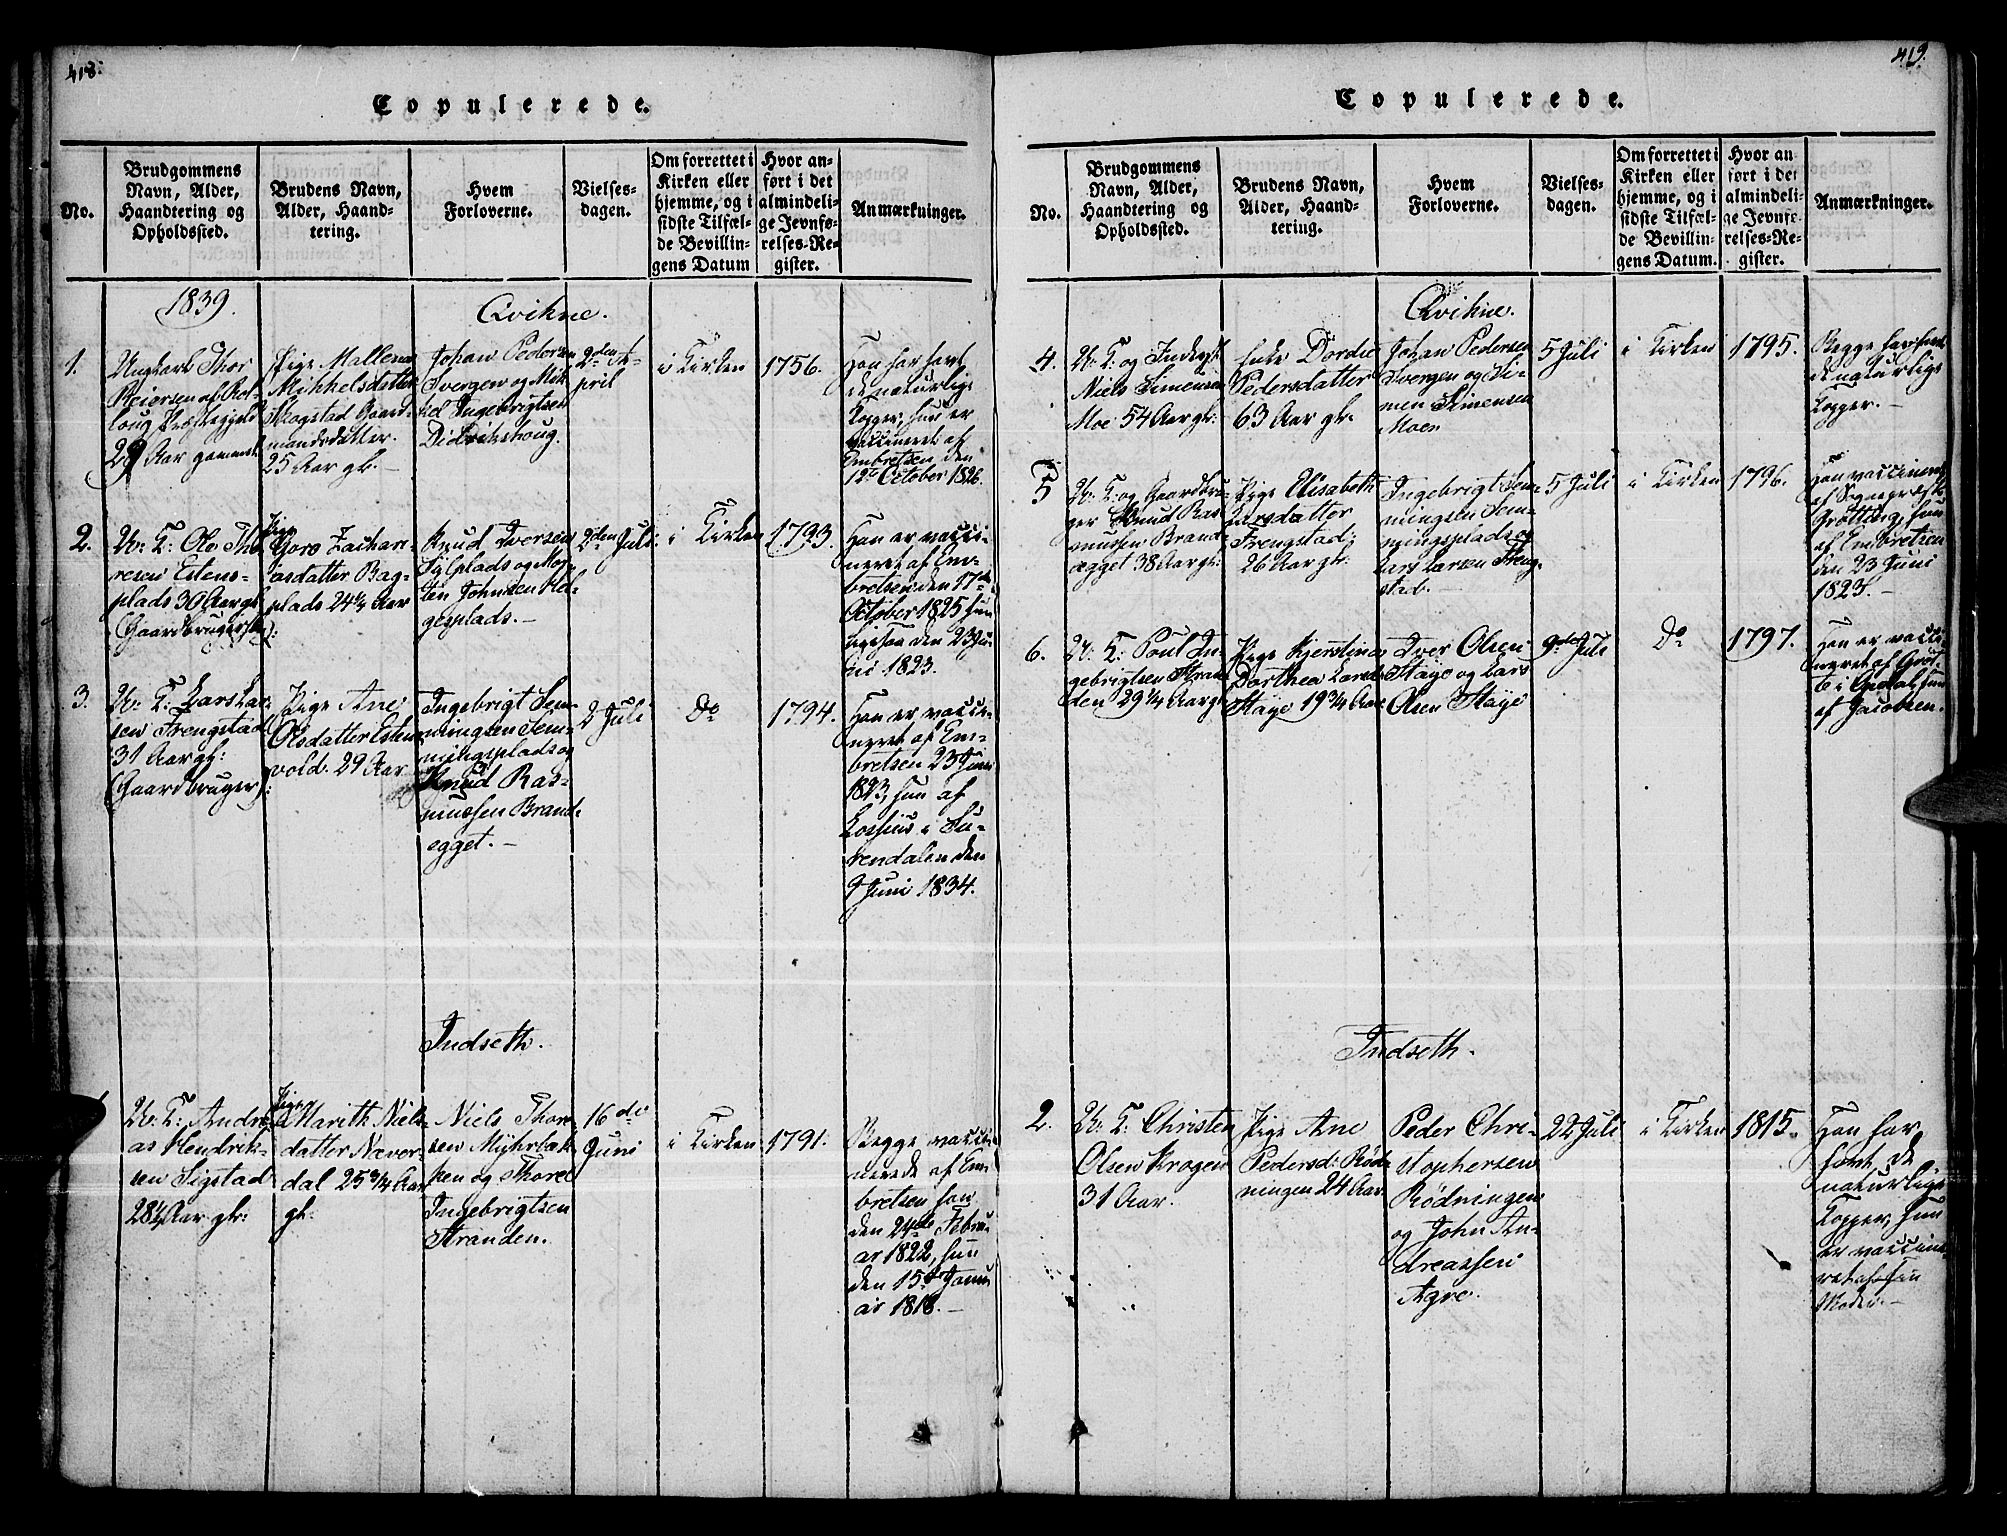 418.
Copulerede.
No.
Brudgommens
Navn, Alder,
Haandtering og
Opholdssted.
Brudens Navn,
Alder, Haand-
tering.
Hvem
Forloverne.
Vielses-
dagen.
Om forrettet i
Kirken eller
hjemme, og i
sidste Tilfæl-
de Bevillin-
gens Datum
Hvor an-
ført i det
almindeli-
ge Jevnfø-
relses-Re-
gister.
Anmærkninger.
1839.
Qvikne.
1.
Ungkarl Thor
Reiersen af Røl-
Præstegjeld
29 Aar gammel
Pige Mallene
Mikkelsdatter
Skogstad Gaard-
mandsdatter.
25 Aar gl. -
Johan Pedersen
Svergen og Mik-
kel Ingebrigtsen
Didrikshoug.
2den A-
pril
i Kirken
1756.
Han har havt
de naturlige
Kopper, hun er
vaccineret af
Embretsen den
12te October 1826.
2.
U: K: Ole Tho-
resen Estens-
plads 30 Aar gl.
(Gaardbruger):
Pige
Goro Zachari-
asdatter Bag-
plads 24 1/2 Aar
Knud Iversen
plads og
ten Johnsen Hel-
gesplads. -
2den Juli
i Kirken
1793.
Han er vacci-
neret af Em-
bretsen den 17de
October 1825 hun
ligesaa den 23 Ju-
ni 1823.
3.
U: K: Lars Lar-
sen Frengstad
31 Aar gl:
(Gaardbruger):
Pige Ane
Olsdatter Esten-
vold. 29 Aar
Ingebrigt Sem-
mingsen Sem-
mingsplads og
Knud Ras-
mussen Brand-
egget. -
2 Juli
Do
1794.
Han er vacci-
neret af Em-
bretsen 23 Juni
1823, hun af
i Su-
rendalen den
9 Juni 1834.
Indseth.
1
U: K: Andre-
as Hendrik-
sen Sigstad
28 1/4 Aar gl:
Pige
Marith Niels-
datter Næver-
dal 25 3/4 Aar
gl:
Niels Thore-
sen Myhrbak-
ken og Thore
Ingebrigtsen
Stranden.
16de
Juni
i Kirken
1791.
Begge vacci-
nerede af Em-
bretsen han
den 24de Febru-
ar 1822, hun
den 15de Janu-
ar 1818. -
419.
Copulerede.
No.
Brudgommens
Navn, Alder,
Haandtering og
Opholdssted.
Brudens Navn,
Alder, Haand-
tering.
Hvem
Forloverne.
Vielses-
dagen.
Om forrettet i
Kirken eller
hjemme, og i
sidste Tilfæl-
de Bevillin-
gens Datum.
Hvor an-
ført i det
almindeli-
ge Jevnfø-
relses-Re-
gister.
Anmærkninger.
Qvikne.
4.
U: K: og Inderst
Niels Simensen
Moe 54 Aar gl:
Enke Dordie
Pedersdatter
63 Aar gl.
Johan Pedersen
Svergen og Si-
men Simensen
Moen
5 Juli
i Kirken
1795.
Begge har havt
de naturlige
Kopper. -
5
U: K: og Gaardbru-
ger Knud Ras-
mussen Brand-
egget 38 Aar gl:
Pige Elisabeth
Larsdatter
Frengstad
26 Aar gl:
Ingebrigt Sem-
mingsen Sem-
mingsplads og
Lars Larsen Freng-
stad. -
5 Juli
i Kirken
1796.
Han vaccineret
af Sognepræst
Grøtting, hun
af Embretsen
den 23 Juni
1823. -
6.
U: K: Poul In-
gebrigtsen Stran-
den 29 1/4 Aar gl.
Pige Kjerstine
Dorthea Larsd.
Staye 19 3/4 Aar
Iver Olsen
Staye og Lars
Olsen Staye
9de Juli
Do
1797.
Han er vacci-
neret af
i hun
af Jacobsen.
Indseth.
2.
U: K: Christen
Olsen Krogen
31 Aar.
Pige Ane
Pedersd: Rød-
ningen 24 Aar
Peder Chri-
stophersen
Rødningen
og John An-
dreassen
Agre.
22 Juli
i Kirken
1815.
Han har
havt de
naturlige
Kopper, hun
er vaccine-
ret af sin
Moder. -